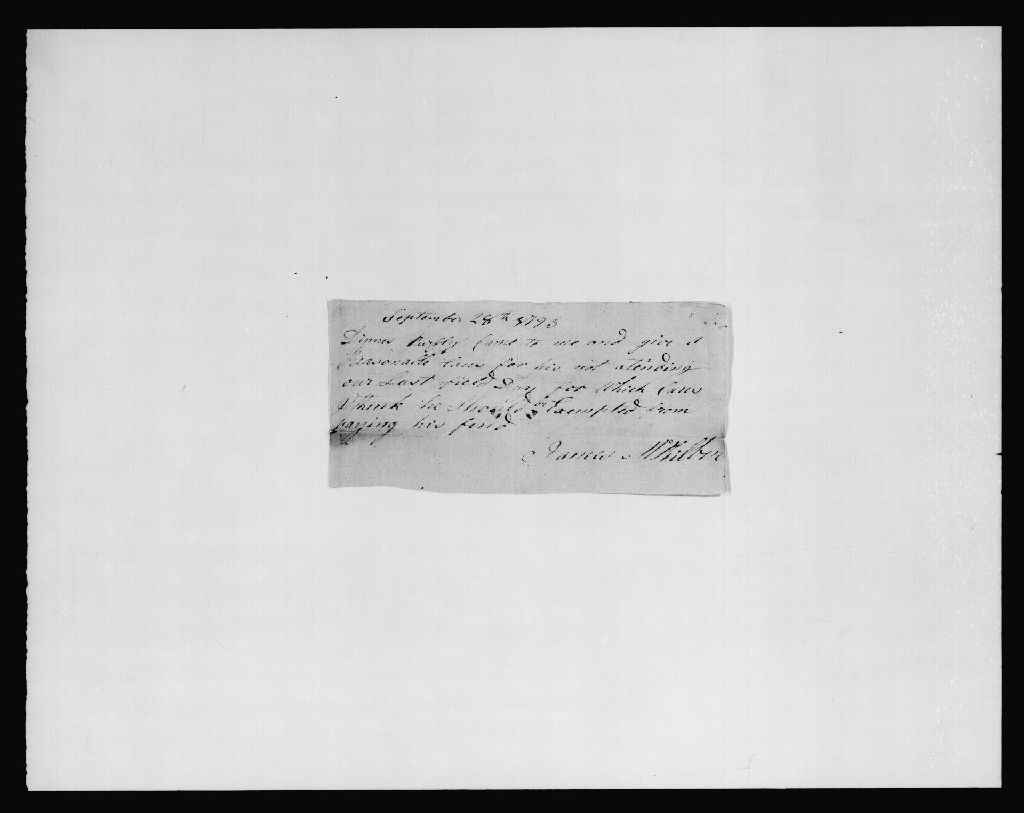 September 28th 1793
Came to me and give a
Reasonable Caus for his not atending
our Last field Day for Which Caus
I think he Should be Exempted from
paying his find
James McKilben